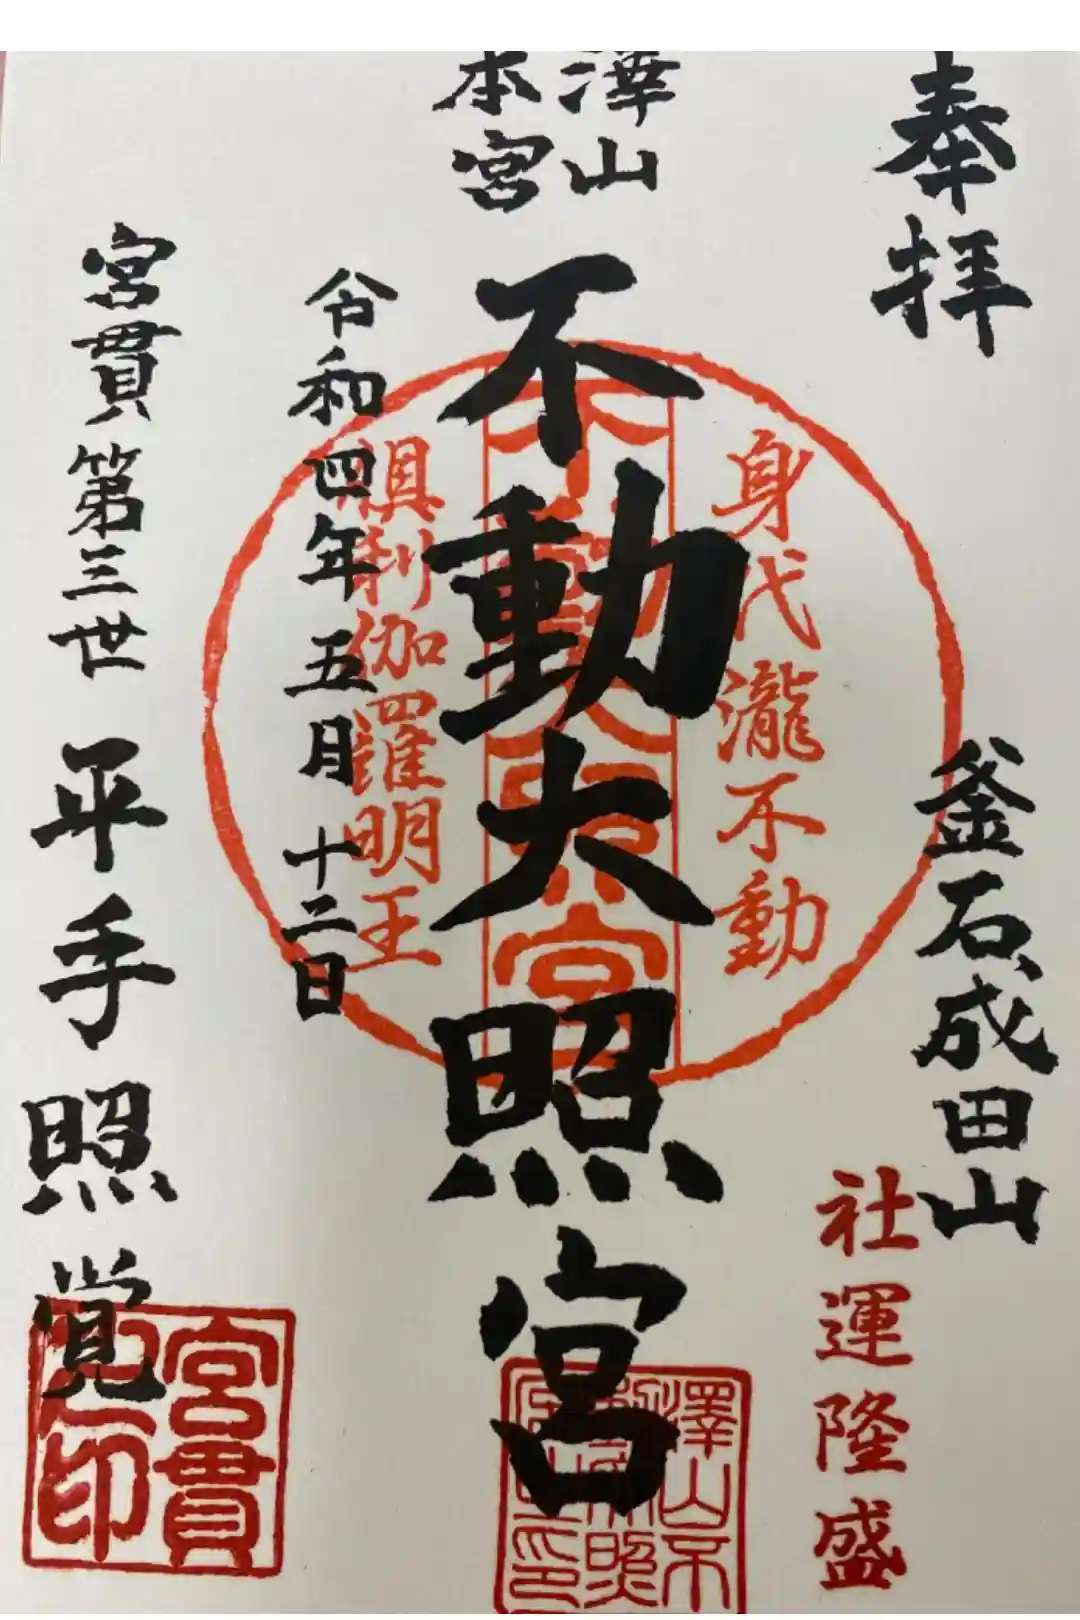 奉拝
釜石成田山
社運隆盛
澤山
本宮
不動大照宮
身代瀧不動
倶利伽羅明王
令和四年五月十二日
宮貫第三世 平手照覚
宮貫
印